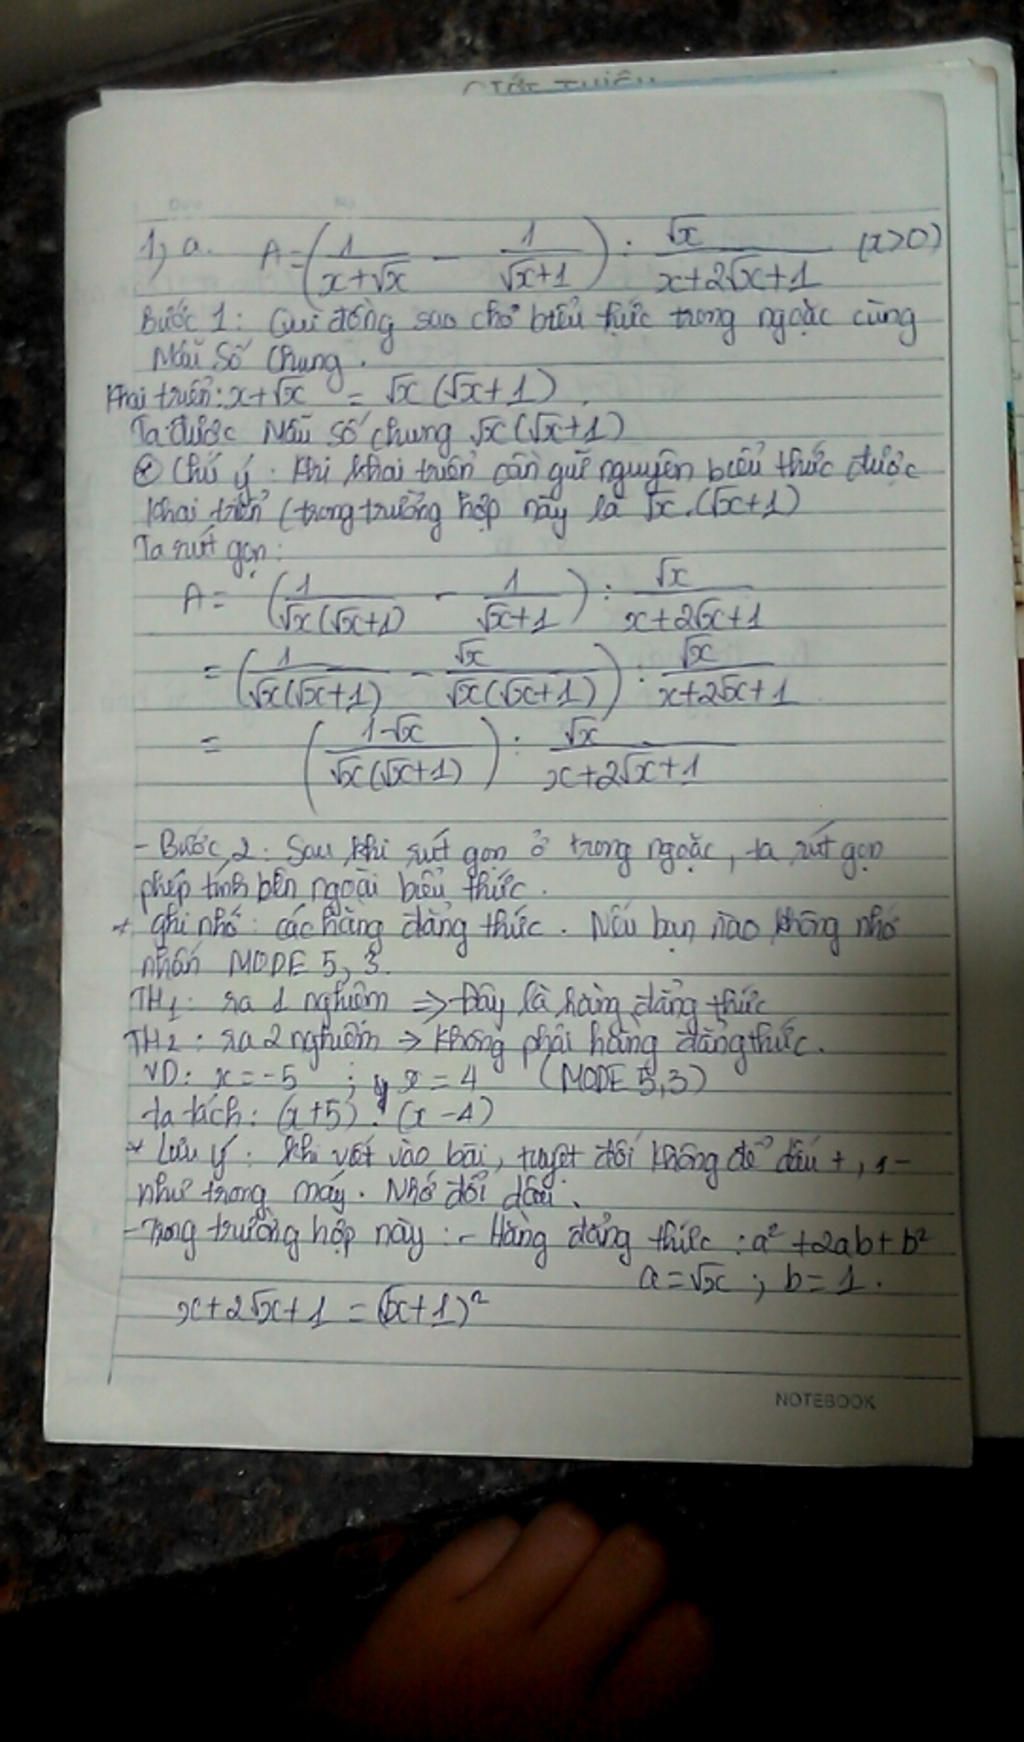 GIỚI THIỆU
1, a. A = (1/(x+√x) - 1/(√x+1)) : √x/(x+2√x+1) (x>0)
Bước 1: Qui đồng sao cho biểu thức trong ngoặc cùng
Mẫu Số Chung.
Khai triển: x+√x = √x(√x+1).
Ta được Mẫu số chung √x(√x+1)
* Chú ý: Khi khai triển cần giữ nguyên biểu thức được
khai triển (trong trường hợp này là √x.(√x+1)
Ta rút gọn:
A = (1/(√x(√x+1)) - 1/(√x+1)) : √x/(x+2√x+1)
= (1/(√x(√x+1)) - √x/(√x(√x+1))) : √x/(x+2√x+1)
= ((1-√x)/(√x(√x+1))) : √x/(x+2√x+1)
- Bước 2: Sau khi rút gọn ở trong ngoặc, ta rút gọn
phép tính bên ngoài biểu thức.
+ Ghi nhớ: các hằng đẳng thức. Nếu bạn nào không nhớ
nhấn MODE 5, 3.
TH1: ra 1 nghiệm => Đây là hằng đẳng thức
TH2: ra 2 nghiệm → không phải hằng đẳng thức.
VD: x = -5 ; x = 4 (MODE 5,3)
ta tách: (x+5).(x-4)
* Lưu ý: Khi viết vào bài, tuyệt đối không để dấu +, -
như trong máy. Nhớ đổi dấu.
- Trong trường hợp này: - Hằng đẳng thức: a² + 2ab + b²
a = √x ; b = 1.
x+2√x+1 = (√x+1)²
NOTEBOOK